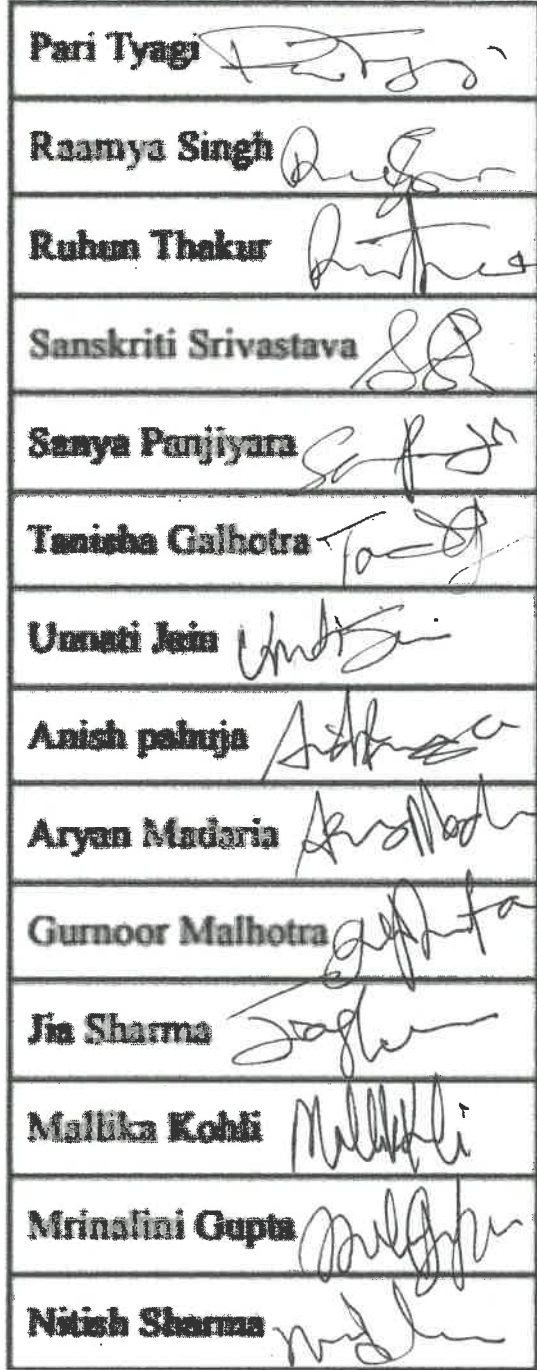 Pari Tyagi
Raamya Singh
Ruhun Thakur
Sanskriti Srivastava
Sanya Panjiyara
Tanisha Galhotra
Unnati Jain
Anish pahuja
Aryan Madaria
Gurnoor Malhotra
Jia Sharma
Mallika Kohli
Mrinalini Gupta
Nitish Sharma